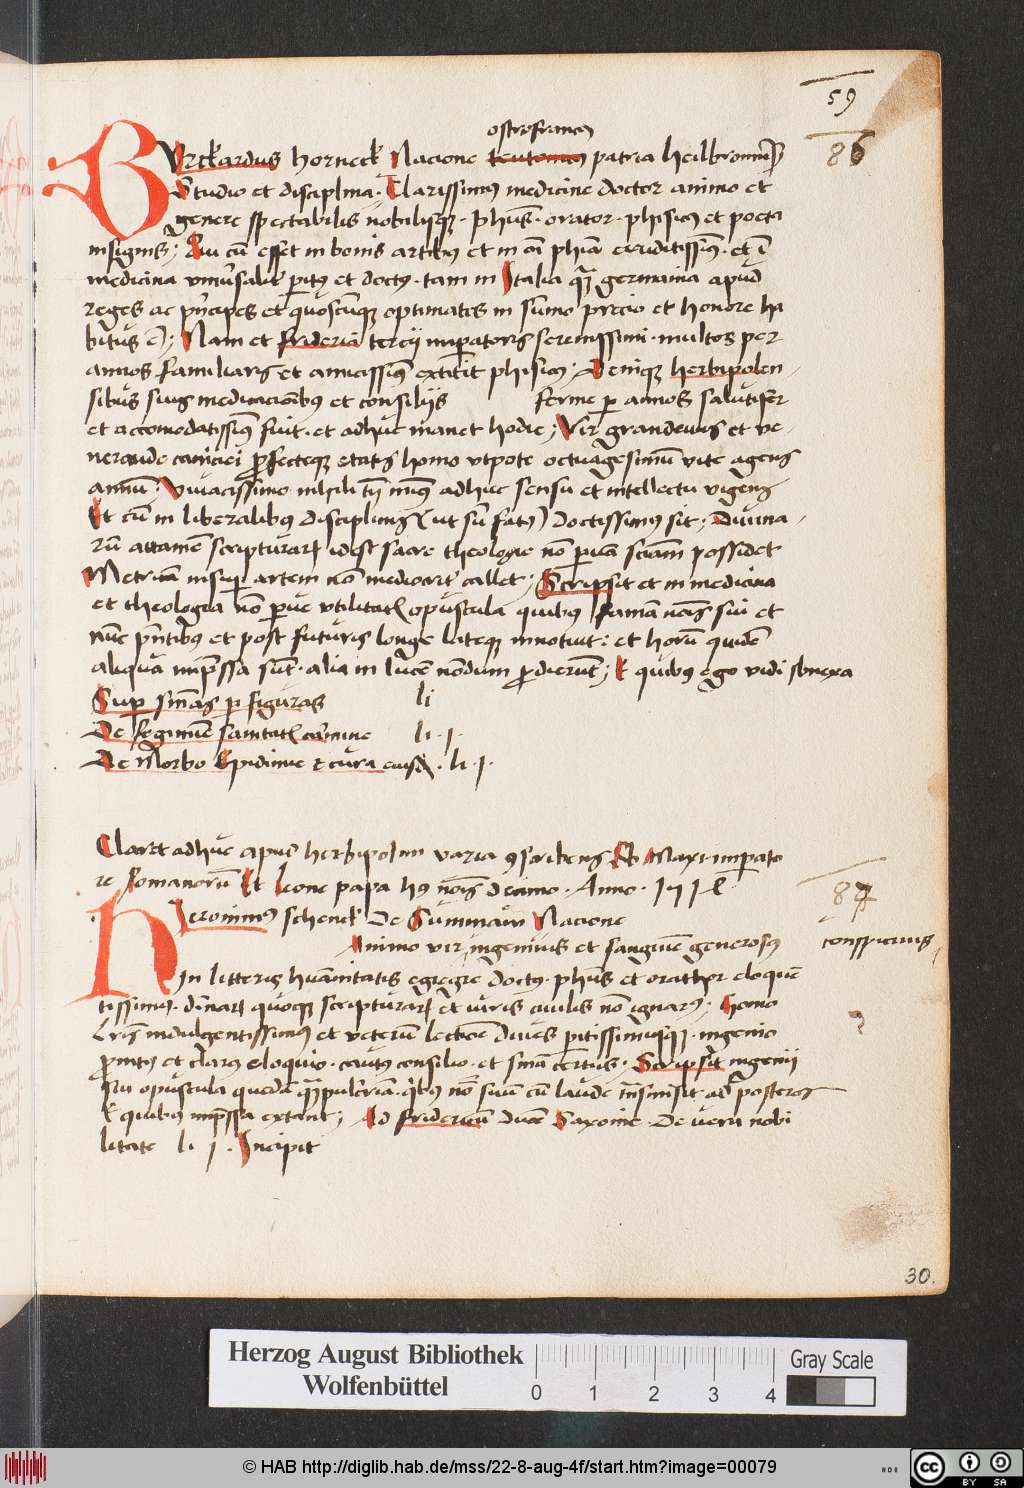 59
86
ostrofrancus
BVrckardus horneck Nacione teutonicus patria heilbronnen
Studio et disciplina. Clarissimus medicine doctor animo et
genere spectabilis nobilisque. phus. orator. phisicus et poeta
insignis; Qui cu esset in bonis artibus et in oi phia eruditissimus. et i
medicina peritus et doctus. tam in Italia qua germania apud
reges ac principes et quoscunque optimates in sumo precio et honore ha
bitus e); Nam et friderici tercij imperatoris serenissimi. multos per
annos familiaris et amicissimus extitit phisicus; Denique herbipolen-
sibus suis medicacionibus et consilijs ferme per annos salutifer
et accomodatissimus fuit. et adhuc manet hodie; Vir grandeuus et ve-
nerande caniciei perfecteque etatis homo vtpote octuagesimum vite agens
annum. Viuacissimo nihili tn minus adhuc sensu et intellectu vigens
Et cum in liberalibus disciplinis (ut sum fatus) doctissimus sit; Diuina-
rum attamen scripturarum idest sacre theologie non paruam scienciam possidet
Metricam insuper artem non mediocriter callet; Scripsit et in medicina
et theologia non parue vtilitatis opuscula quibus famam nominis sui et
nunc presentibus et post futuris longe lateque innotuit: et horum quidem
aliqua impressa sunt. alia in lucem nondum prodierunt; E quibus ego vidi sbnexa
Super sentencias per figuras li
De Regimine sanitatis carmine li. j.
De Morbo Epidimie et cura eiusdem. li. j.
Claret adhuc apud herbipolim varia conscribens sub Maxi. imperato
re Romanorum Et Leone papa hus nominis decimo. Anno.
87
HIeronimus schenck De Summaw Nacione
Animo vir, ingenuus et sanguine generosus conspicuus
In litteris humanitatis egregie doctus. phus et orathor eloquen
tissimus. diuinarum quoque scripturarum et iuris ciuilis non ignarus; homo
lris indulgentissimus et veterum lectione diues peritissimusque. ingenio
promtus et clarus eloquio. cautus consilio. et sentencia certus. Scripsit ingenij
sui opuscula quedam quampulcerrima. quibus nomen suum cum laude transmisit ad posteros
E quibus impressa extant; Ad fridericum ducem Saxonie. De vera nobi
litate li j. Incipit
30.
Herzog August Bibliothek
Wolfenbüttel
0 1 2 3 4
Gray Scale
© HAB http://diglib.hab.de/mss/22-8-aug-4f/start.htm?image=00079
HAB
cc BY SA